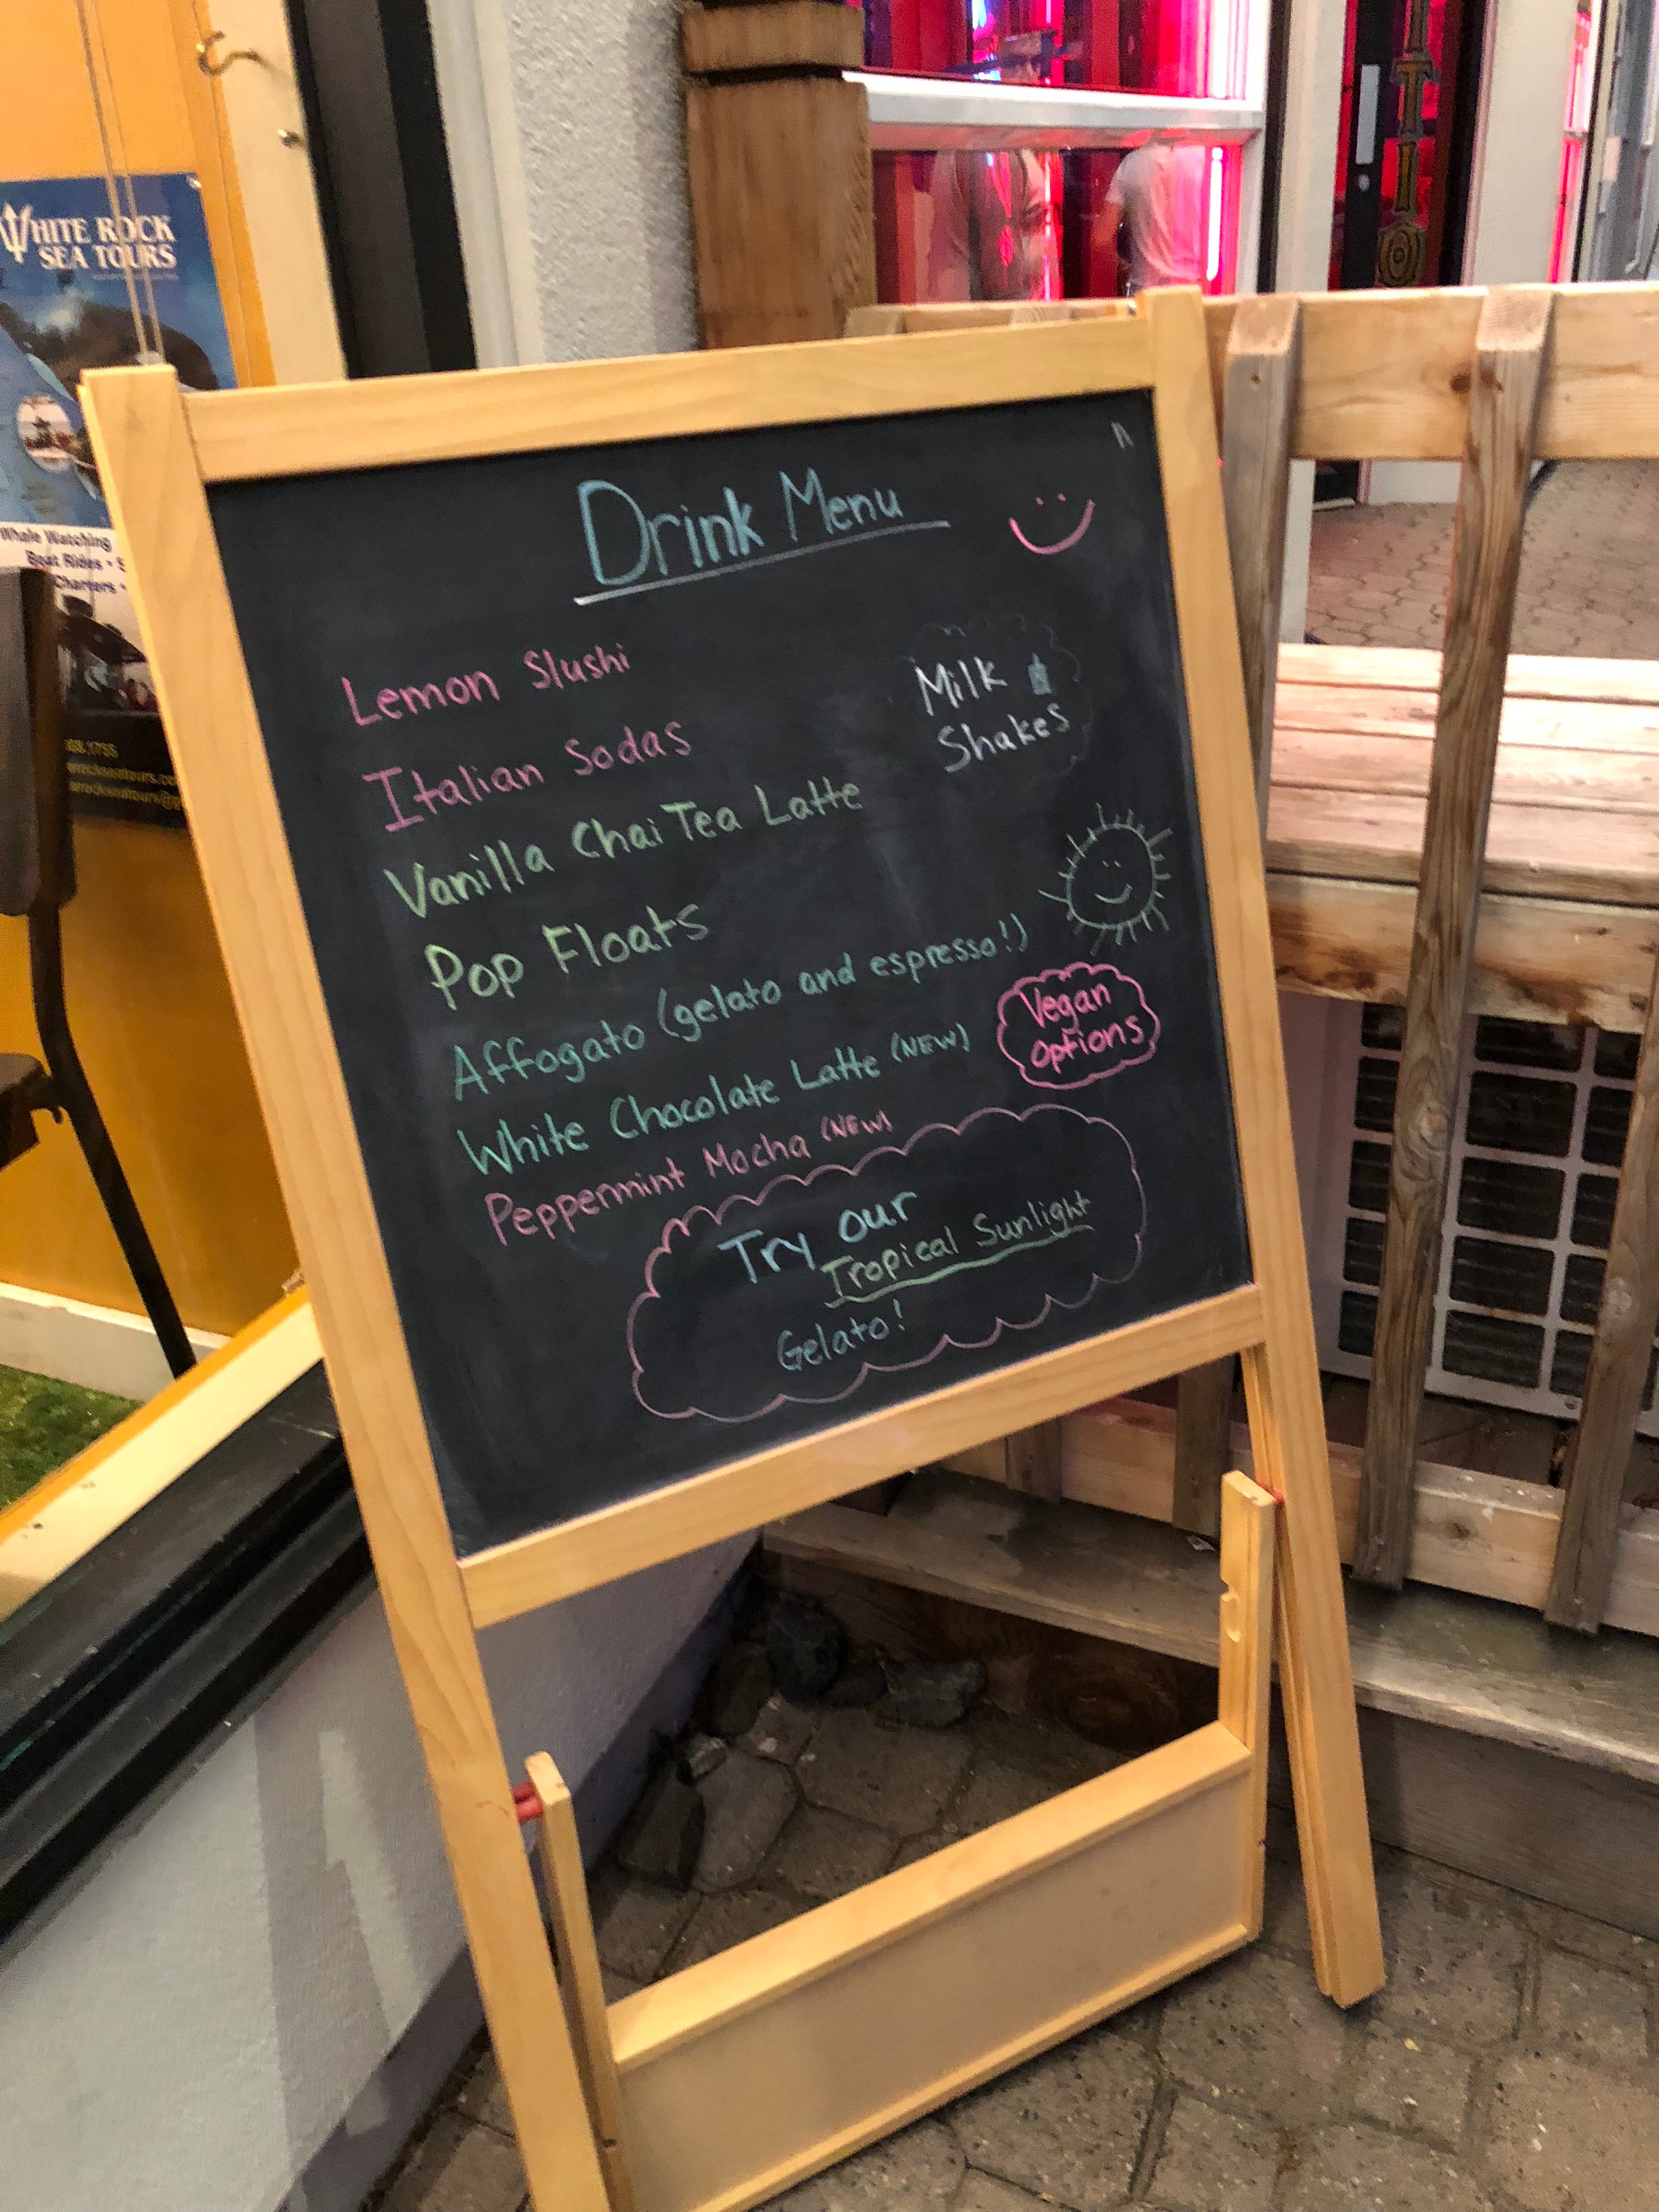 WHITE ROCK
SEA TOURS
Whale Watching
Boat Rides •
Charters •
Drink Menu
Lemon Slushi
Italian Sodas
Milk
Shakes
Vanilla Chai Tea Latte
Pop Floats
Affogato (gelato and espresso!)
White Chocolate Latte (NEW)
Vegan
Options
Peppermint Mocha (NEW)
Try our
Tropical Sunlight
Gelato!